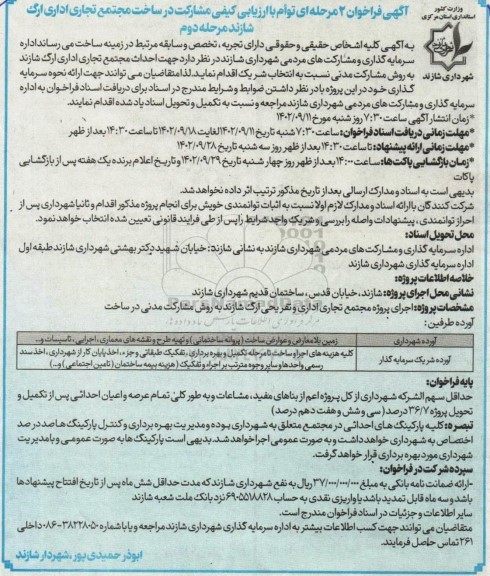 وزارت کشور
استانداری استان مرکزی
شهرداری شازند
آگهی فراخوان ۲ مرحله ای توأم با ارزیابی کیفی مشارکت در ساخت مجتمع تجاری اداری ارگ
شازند مرحله دوم
به آگهی کلیه اشخاص حقیقی و حقوقی دارای تجربه، تخصص و سابقه مرتبط در زمینه ساخت می رساند اداره
سرمایه گذاری و مشارکت های مردمی شهرداری شازند در نظر دارد جهت احداث مجتمع تجاری اداری ارگ شازند
به روش مشارکت مدنی نسبت به انتخاب شریک اقدام نماید. لذا متقاضیان می توانند جهت ارائه نحوه سرمایه
گذاری خود در این پروژه با در نظر داشتن ضوابط و شرایط مندرج در اسناد برای دریافت اسناد فراخوان به اداره
سرمایه گذاری و مشارکت های مردمی شهرداری شازند مراجعه و نسبت به تکمیل و تحویل اسناد یاد شده اقدام نمایند.
*زمان انتشار آگهی ساعت ۷:۳۰ روز شنبه مورخ ۱۴۰۲/۰۹/۱۱
*مهلت زمانی دریافت اسناد فراخوان: ساعت ۷:۳۰ شنبه تاریخ ۱۴۰۲/۰۹/۱۱ لغایت ۱۴۰۲/۰۹/۱۸ تا ساعت ۱۴:۳۰ بعد از ظهر
*مهلت زمانی ارائه پیشنهاد: تا ساعت ۱۴:۳۰ بعد از ظهر روز سه شنبه تاریخ ۱۴۰۲/۰۹/۲۸
*زمان بازگشایی پاکت ها: ساعت ۱۴:۰۰ بعد از ظهر روز چهار شنبه تاریخ ۱۴۰۲/۰۹/۲۹ و تاریخ اعلام برنده یک هفته پس از بازگشایی
پاکات
بدیهی است به اسناد و مدارک ارسالی بعد از تاریخ مذکور ترتیب اثر داده نخواهد شد.
شرکت کنندگان با ارائه اسناد و مدارک لازم اولا نسبت به اثبات توانمندی خویش برای انجام پروژه مذکور اقدام و ثانیا شهرداری پس از
احراز توانمندی، پیشنهادات واصله را بررسی و شریک واجد شرایط را پس از طی فرایند قانونی تعیین شده انتخاب خواهد نمود.
محل تحویل اسناد:
اداره سرمایه گذاری و مشارکت های مردمی شهرداری شازند به نشانی شازند: خیابان شهید دکتر بهشتی شهرداری شازند طبقه اول
اداره سرمایه گذاری شهرداری شازند
خلاصه اطلاعات پروژه:
نشانی محل اجرای پروژه: شازند، خیابان قدس، ساختمان قدیم شهرداری شازند
مشخصات پروژه: اجرای پروژه مجتمع تجاری اداری و تفریحی ارگ شازند به روش مشارکت مدنی در ساخت
آورده طرفین:
آورده شهرداری	زمین بلا معارض و عوارض ساخت (پروانه ساختمانی) و تهیه طرح و نقشه های معماری، اجرایی، تاسیسات و...
آورده شریک سرمایه گذار	کلیه هزینه های اجرا و ساخت تا مرحله تکمیل و بهره برداری، تفکیک طبقاتی و جزء، اخذ پایان کار از شهرداری، اخذ سند رسمی واحدها و سایر وجوه مترتب بر اجرا و تفکیک (هزینه بیمه ساختمان (تامین اجتماعی) و...)
پایه فراخوان:
حداقل سهم الشرکه شهرداری از کل پروژه اعم از بناهای مفید، مشاعات و به طور کلی تمام عرصه و اعیان احداثی پس از تکمیل و
تحویل پروژه ۳۶/۷ درصد (سی و شش و هفت دهم درصد)
تبصره: کلیه پارکینگ های احداثی در مجتمع متعلق به شهرداری بوده و مدیریت بهره برداری و کنترل پارکینگ ها صد در صد
اختصاص به شهرداری خواهد داشت و به صورت عمومی اجرا خواهد شد. بدیهی است پارکینگ ها به صورت عمومی و با مدیریت
شهرداری مورد بهره برداری قرار خواهد گرفت.
سپرده شرکت در فراخوان:
-ارائه ضمانت نامه بانکی به مبلغ ۳۷/۰۰۰/۰۰۰/۰۰۰ ریال به نفع شهرداری شازند که مدت حداقل شش ماه پس از تاریخ افتتاح پیشنهادها
باشد و سه ماه قابل تمدید باشد یا واریزی نقدی به حساب ۶۹۰۵۵۱۸۸۲۸ نزد بانک ملت شعبه شازند
سایر اطلاعات و جزئیات در اسناد فراخوان مندرج است.
متقاضیان می توانند جهت کسب اطلاعات بیشتر به اداره سرمایه گذاری شهرداری شازند مراجعه و یا با شماره ۰۸۶-۳۸۲۲۸۰۵۰ داخلی
۲۶۱ تماس حاصل فرمایند.
ابوذر حمیدی پور، شهردار شازند